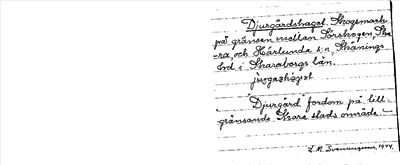 Djurgårdshaget. Skogsmark
på gränsen mellan Forshagen, Ska
-ra, och Härlunda s:n, Skånings
hrd i Skaraborgs län.
jurgashagət
"Djurgård" fordom på till-
gränsande Skara stads område."
1944.